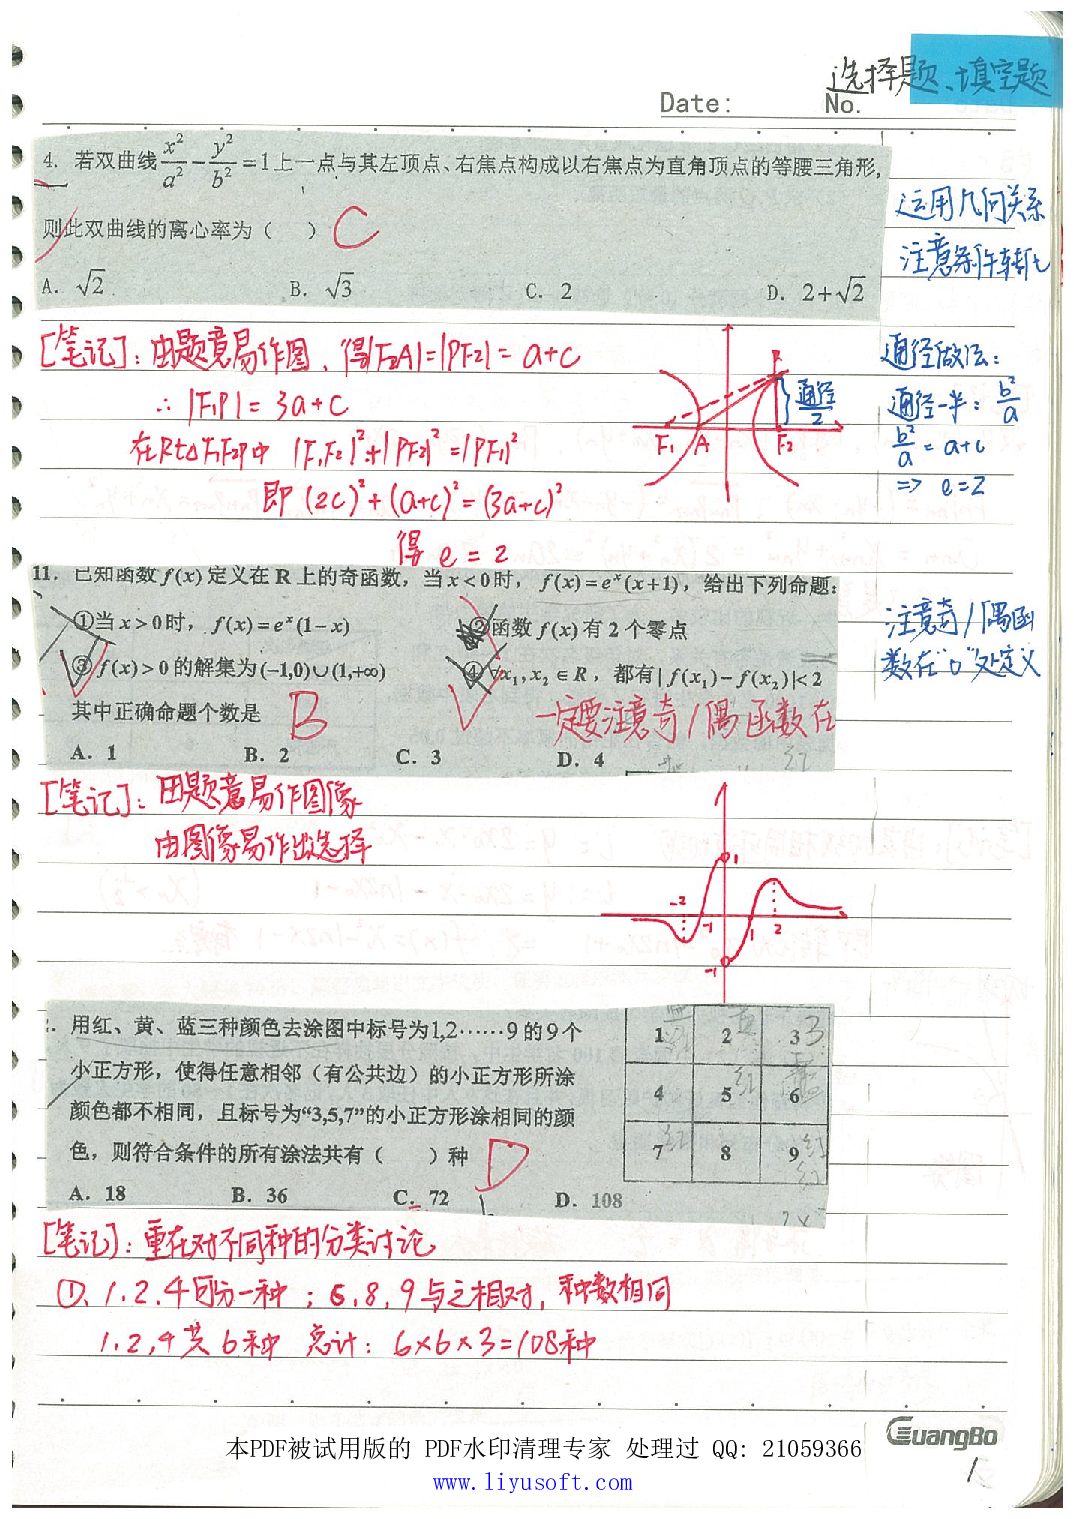 选择题、填空题
Date:
No.
4. 若双曲线 x²/a² - y²/b² =1上一点与其左顶点、右焦点构成以右焦点为直角顶点的等腰三角形,
则此双曲线的离心率为（ ） C
A. √2 B. √3 C. 2 D. 2+√2
运用几何关系
注意条件转化
[笔记]: 由题意易作图、得|F₂A|=|PF₂|= a+c
∴ |F₁P|= 3a+c
在Rt△F₁F₂P中 |F₁F₂|²+|PF₂|²=|PF₁|²
即 (2c)²+(a+c)²=(3a+c)²
得 e = 2
F₁ A F₂
通径/2
通径做法:
通径一半: b²/a
b²/a = a+c
=> e=2
11. 已知函数 f(x) 定义在 R 上的奇函数，当 x<0 时， f(x)=eˣ(x+1)，给出下列命题:
①当 x>0 时， f(x)=eˣ(1-x) ②函数 f(x) 有 2 个零点
③ f(x)>0 的解集为 (-1,0)∪(1,+∞) ④∀x₁,x₂∈R，都有|f(x₁)-f(x₂)|<2
其中正确命题个数是 B
一定要注意奇/偶函数在
A. 1 B. 2 C. 3 D. 4
注意奇/偶函
数在“0”处定义
[笔记]: 由题意易作图像
由图像易作出选择
1
-2 -1 1 2
-1
用红、黄、蓝三种颜色去涂图中标号为1,2……9 的9个
小正方形，使得任意相邻（有公共边）的小正方形所涂
颜色都不相同，且标号为“3,5,7”的小正方形涂相同的颜
色，则符合条件的所有涂法共有（ ）种 D
A. 18 B. 36 C. 72 D. 108
1 2 3
4 5 6
7 8 9
[笔记]: 重在对不同种的分类讨论
①、1.2.4可分一种；6.8.9与之相对，种数相同
1.2.4共6种 总计: 6×6×3=108种
GuangBo
1
本PDF被试用版的 PDF水印清理专家 处理过 QQ: 21059366
www.liyusoft.com